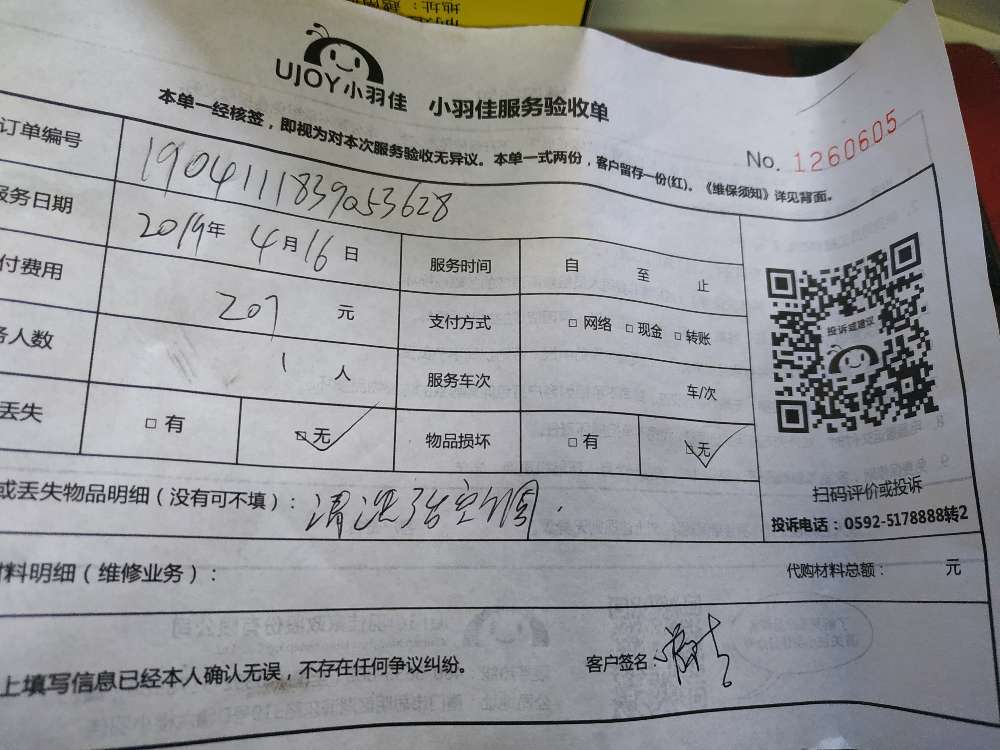 UJOY小羽佳
小羽佳服务验收单
本单一经核签，即视为对本次服务验收无异议。本单一式两份，客户留存一份(红)。《维保须知》详见背面。
No. 1260605
订单编号 1904111839053628
服务日期 2019年 4月16日 服务时间 自 至 止
付费用 207 元 支付方式 □ 网络 □ 现金 □ 转账
务人数 1 人 服务车次 车/次
丢失 □ 有 □ 无 物品损坏 □ 有 □ 无
投诉或建议
扫码评价或投诉
投诉电话：0592-5178888转2
或丢失物品明细（没有可不填）：清洗3台空调.
材料明细（维修业务）： 代购材料总额： 元
上填写信息已经本人确认无误，不存在任何争议纠纷。 客户签名：